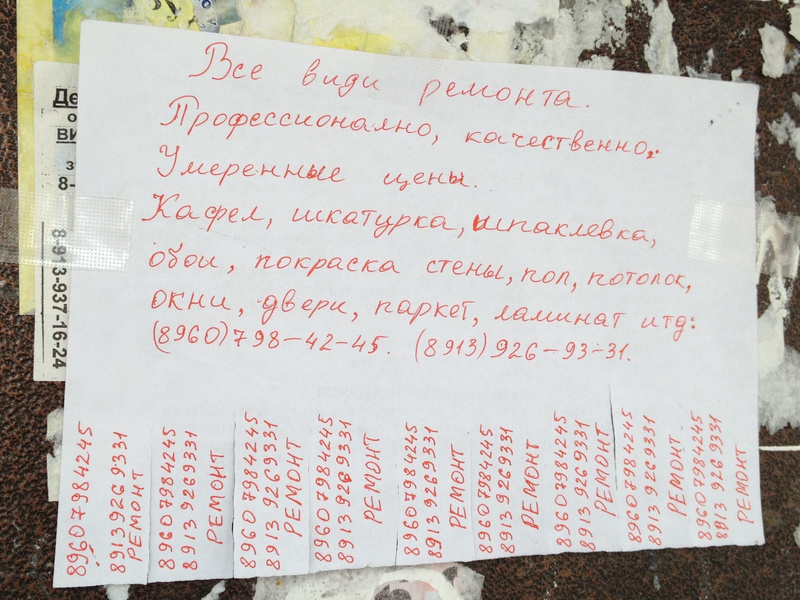 Все види ремонта.
Профессионално, качественно.
Умеренные цены.
Кафел, шкатурка, шпаклевка,
обои, покраска стены, пол, потолок,
окни, двери, паркет, ламинат итд:
(8960)798-42-45. (8913)926-93-31.
89607984245
89139269331
РЕМОНТ
89607984245
89139269331
РЕМОНТ
89607984245
89139269331
РЕМОНТ
89607984245
89139269331
РЕМОНТ
89607984245
89139269331
РЕМОНТ
89607984245
89139269331
РЕМОНТ
89607984245
89139269331
РЕМОНТ
89607984245
89139269331
РЕМОНТ
89607984245
89139269331
РЕМОНТ
8-913-937-16-24